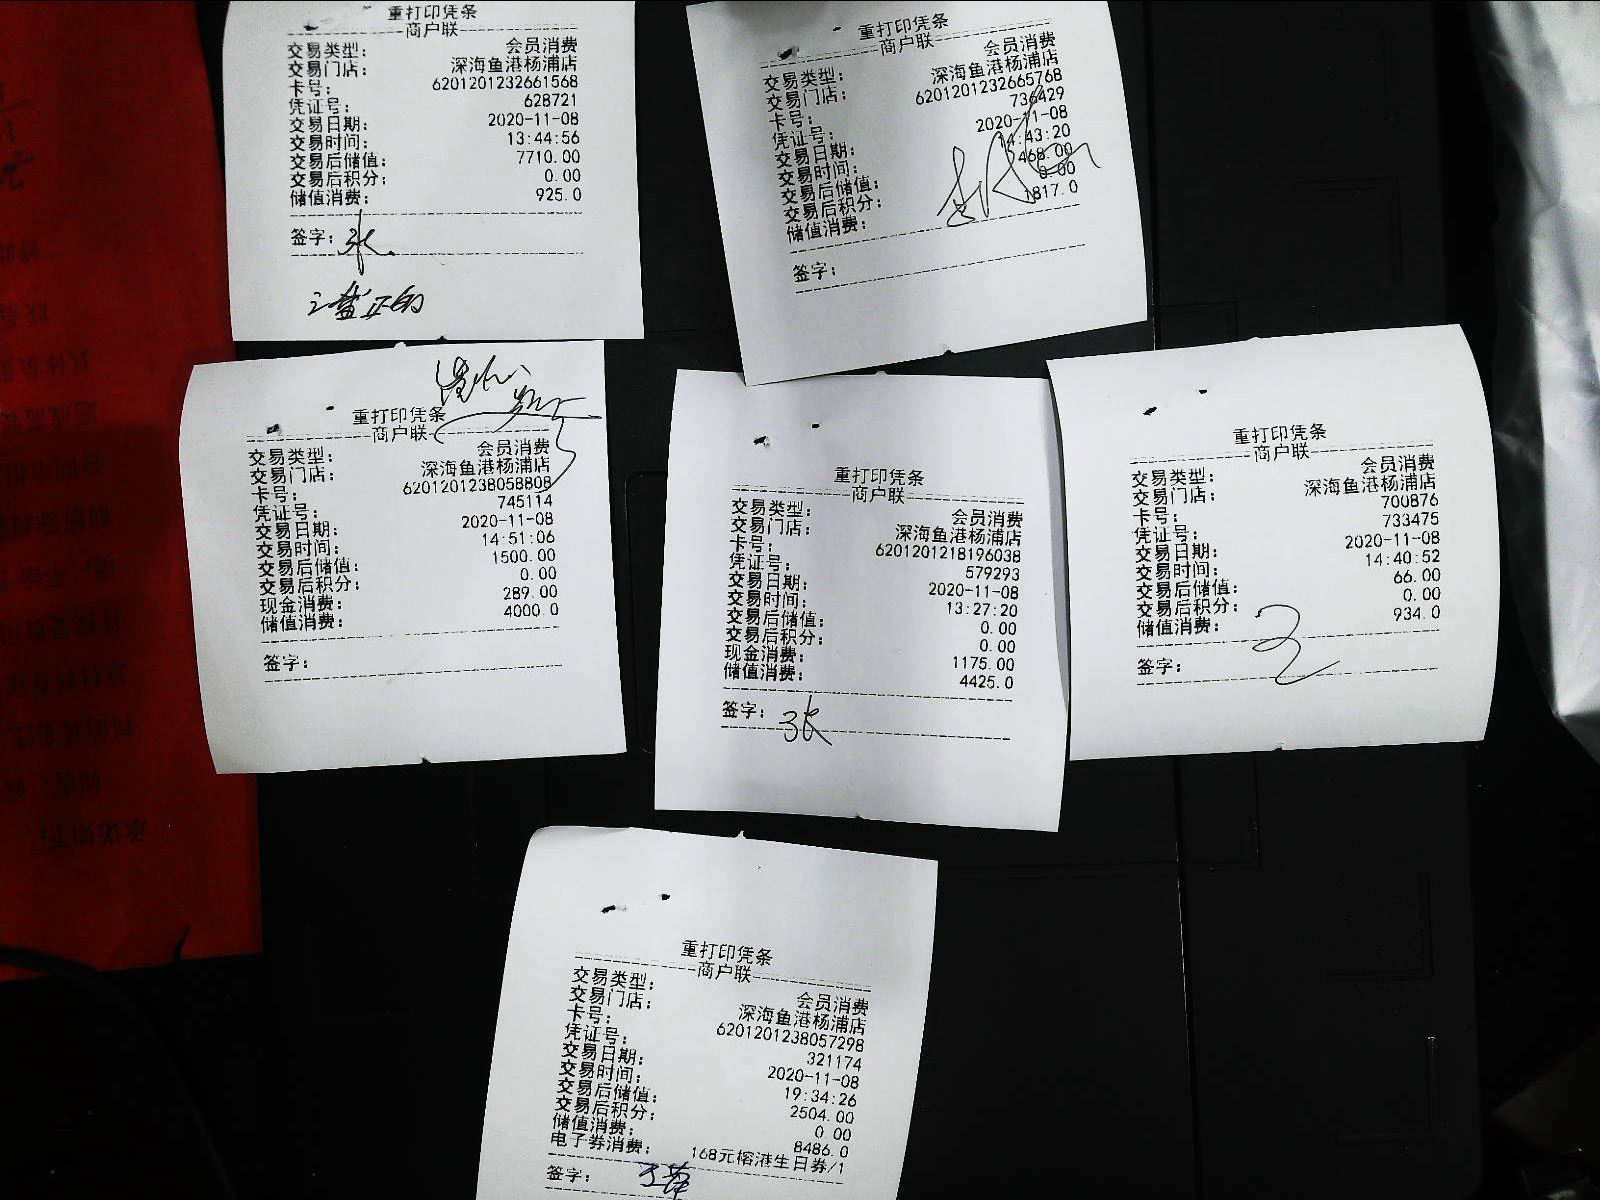 重打印凭条
商户联
交易类型： 会员消费
交易门店： 深海鱼港杨浦店
卡号： 6201201232661568
凭证号： 628721
交易日期： 2020-11-08
交易时间： 13:44:56
交易后储值： 7710.00
交易后积分： 0.00
储值消费： 925.0
签字：张
重打印凭条
商户联
交易类型： 会员消费
交易门店： 深海鱼港杨浦店
卡号： 6201201232665768
凭证号： 736429
交易日期： 2020-11-08
交易时间： 14:43:20
交易后储值： 468.00
交易后积分： 0.00
储值消费： 1817.0
签字：
重打印凭条
商户联
交易类型： 会员消费
交易门店： 深海鱼港杨浦店
卡号： 6201201238058808
凭证号： 745114
交易日期： 2020-11-08
交易时间： 14:51:06
交易后储值： 1500.00
交易后积分： 0.00
现金消费： 289.00
储值消费： 4000.0
签字：
重打印凭条
商户联
交易类型： 会员消费
交易门店： 深海鱼港杨浦店
卡号： 6201201218196038
凭证号： 579293
交易日期： 2020-11-08
交易时间： 13:27:20
交易后储值： 0.00
交易后积分： 0.00
现金消费： 1175.00
储值消费： 4425.0
签字：张
重打印凭条
商户联
交易类型： 会员消费
交易门店： 深海鱼港杨浦店
卡号： 700876
凭证号： 733475
交易日期： 2020-11-08
交易时间： 14:40:52
交易后储值： 66.00
交易后积分： 0.00
储值消费： 934.0
签字：
重打印凭条
商户联
交易类型： 会员消费
交易门店： 深海鱼港杨浦店
卡号： 6201201238057298
凭证号： 321174
交易日期： 2020-11-08
交易时间： 19:34:26
交易后储值： 2504.00
交易后积分： 0.00
储值消费： 8486.0
电子券消费： 168元榕港生日券/1
签字：